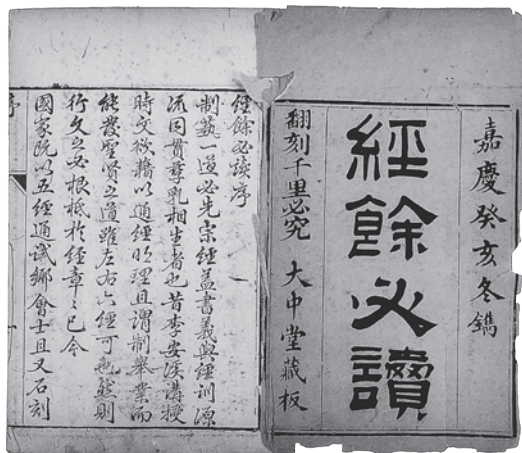 嘉慶癸亥冬鐫
經餘必讀
翻刻千里必究 大中堂藏板
經餘必讀序
制藝一道必先宗經蓋書義與經訓源
流同貫孳乳相生者也昔李安溪講授
時文欲藉以通經明理且謂制舉業而
能發聖賢之道雖左右六經可也然則
行文之必根柢於經章〻已今
國家既以五經通試鄉會士且又石刻
序